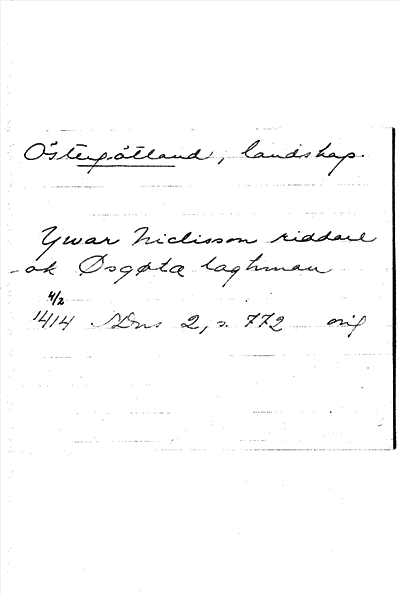 Östergötland, landskap.
Ywar Niclisson riddare
ok Øsgøta laghman
4/2
1414 SDns 2, s. 772 orig